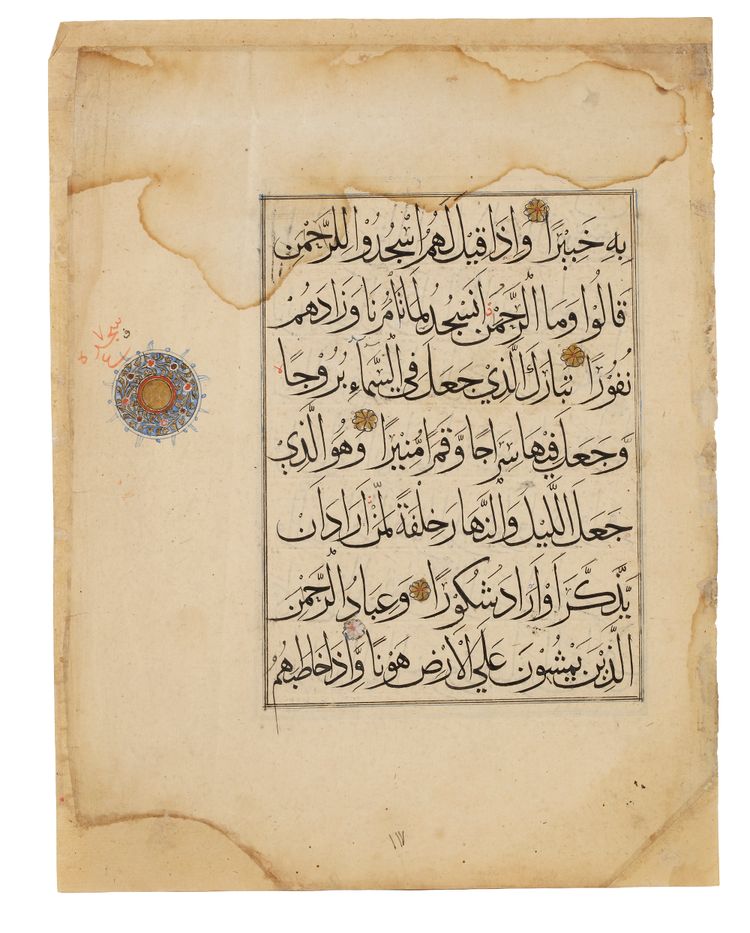 بِهِ خَبِيْرًا وَإِذَا قِيْلَ لَهُمُ اسْجُدُوا لِلرَّحْمٰنِ
قَالُوا وَمَا الرَّحْمٰنُ اَنَسْجُدُ لِمَا تَأْمُرُنَا وَزَادَهُمْ
نُفُوْرًا تَبَارَكَ الَّذِيْ جَعَلَ فِي السَّمَاءِ بُرُوْجًا
وَّجَعَلَ فِيْهَا سِرَاجًا وَّقَمَرًا مُّنِيْرًا وَهُوَ الَّذِيْ
جَعَلَ اللَّيْلَ وَالنَّهَارَ خِلْفَةً لِّمَنْ اَرَادَ اَنْ
يَّذَّكَّرَ اَوْ اَرَادَ شُكُوْرًا وَعِبَادُ الرَّحْمٰنِ
الَّذِيْنَ يَمْشُوْنَ عَلَي الْاَرْضِ هَوْنًا وَّاِذَا خَاطَبَهُمُ
سجده
١٧